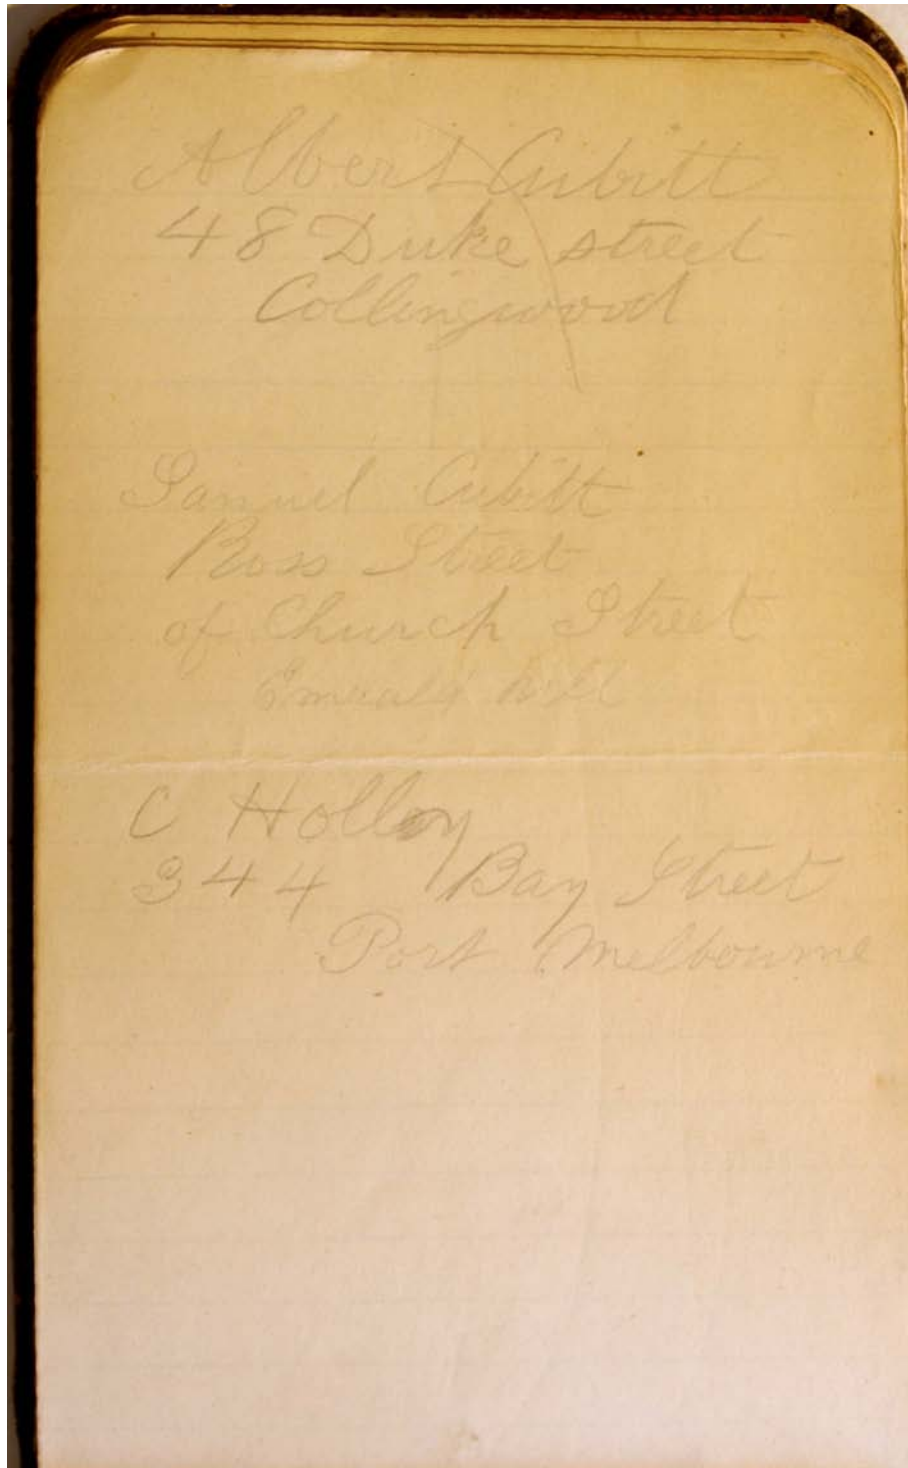 Albert Cubitt
48 Duke street
Collingwood
Samuel Cubitt
Ross Street
of Church Street
Emerald hill
C Holloy
344 Bay Street
Port Melbourne